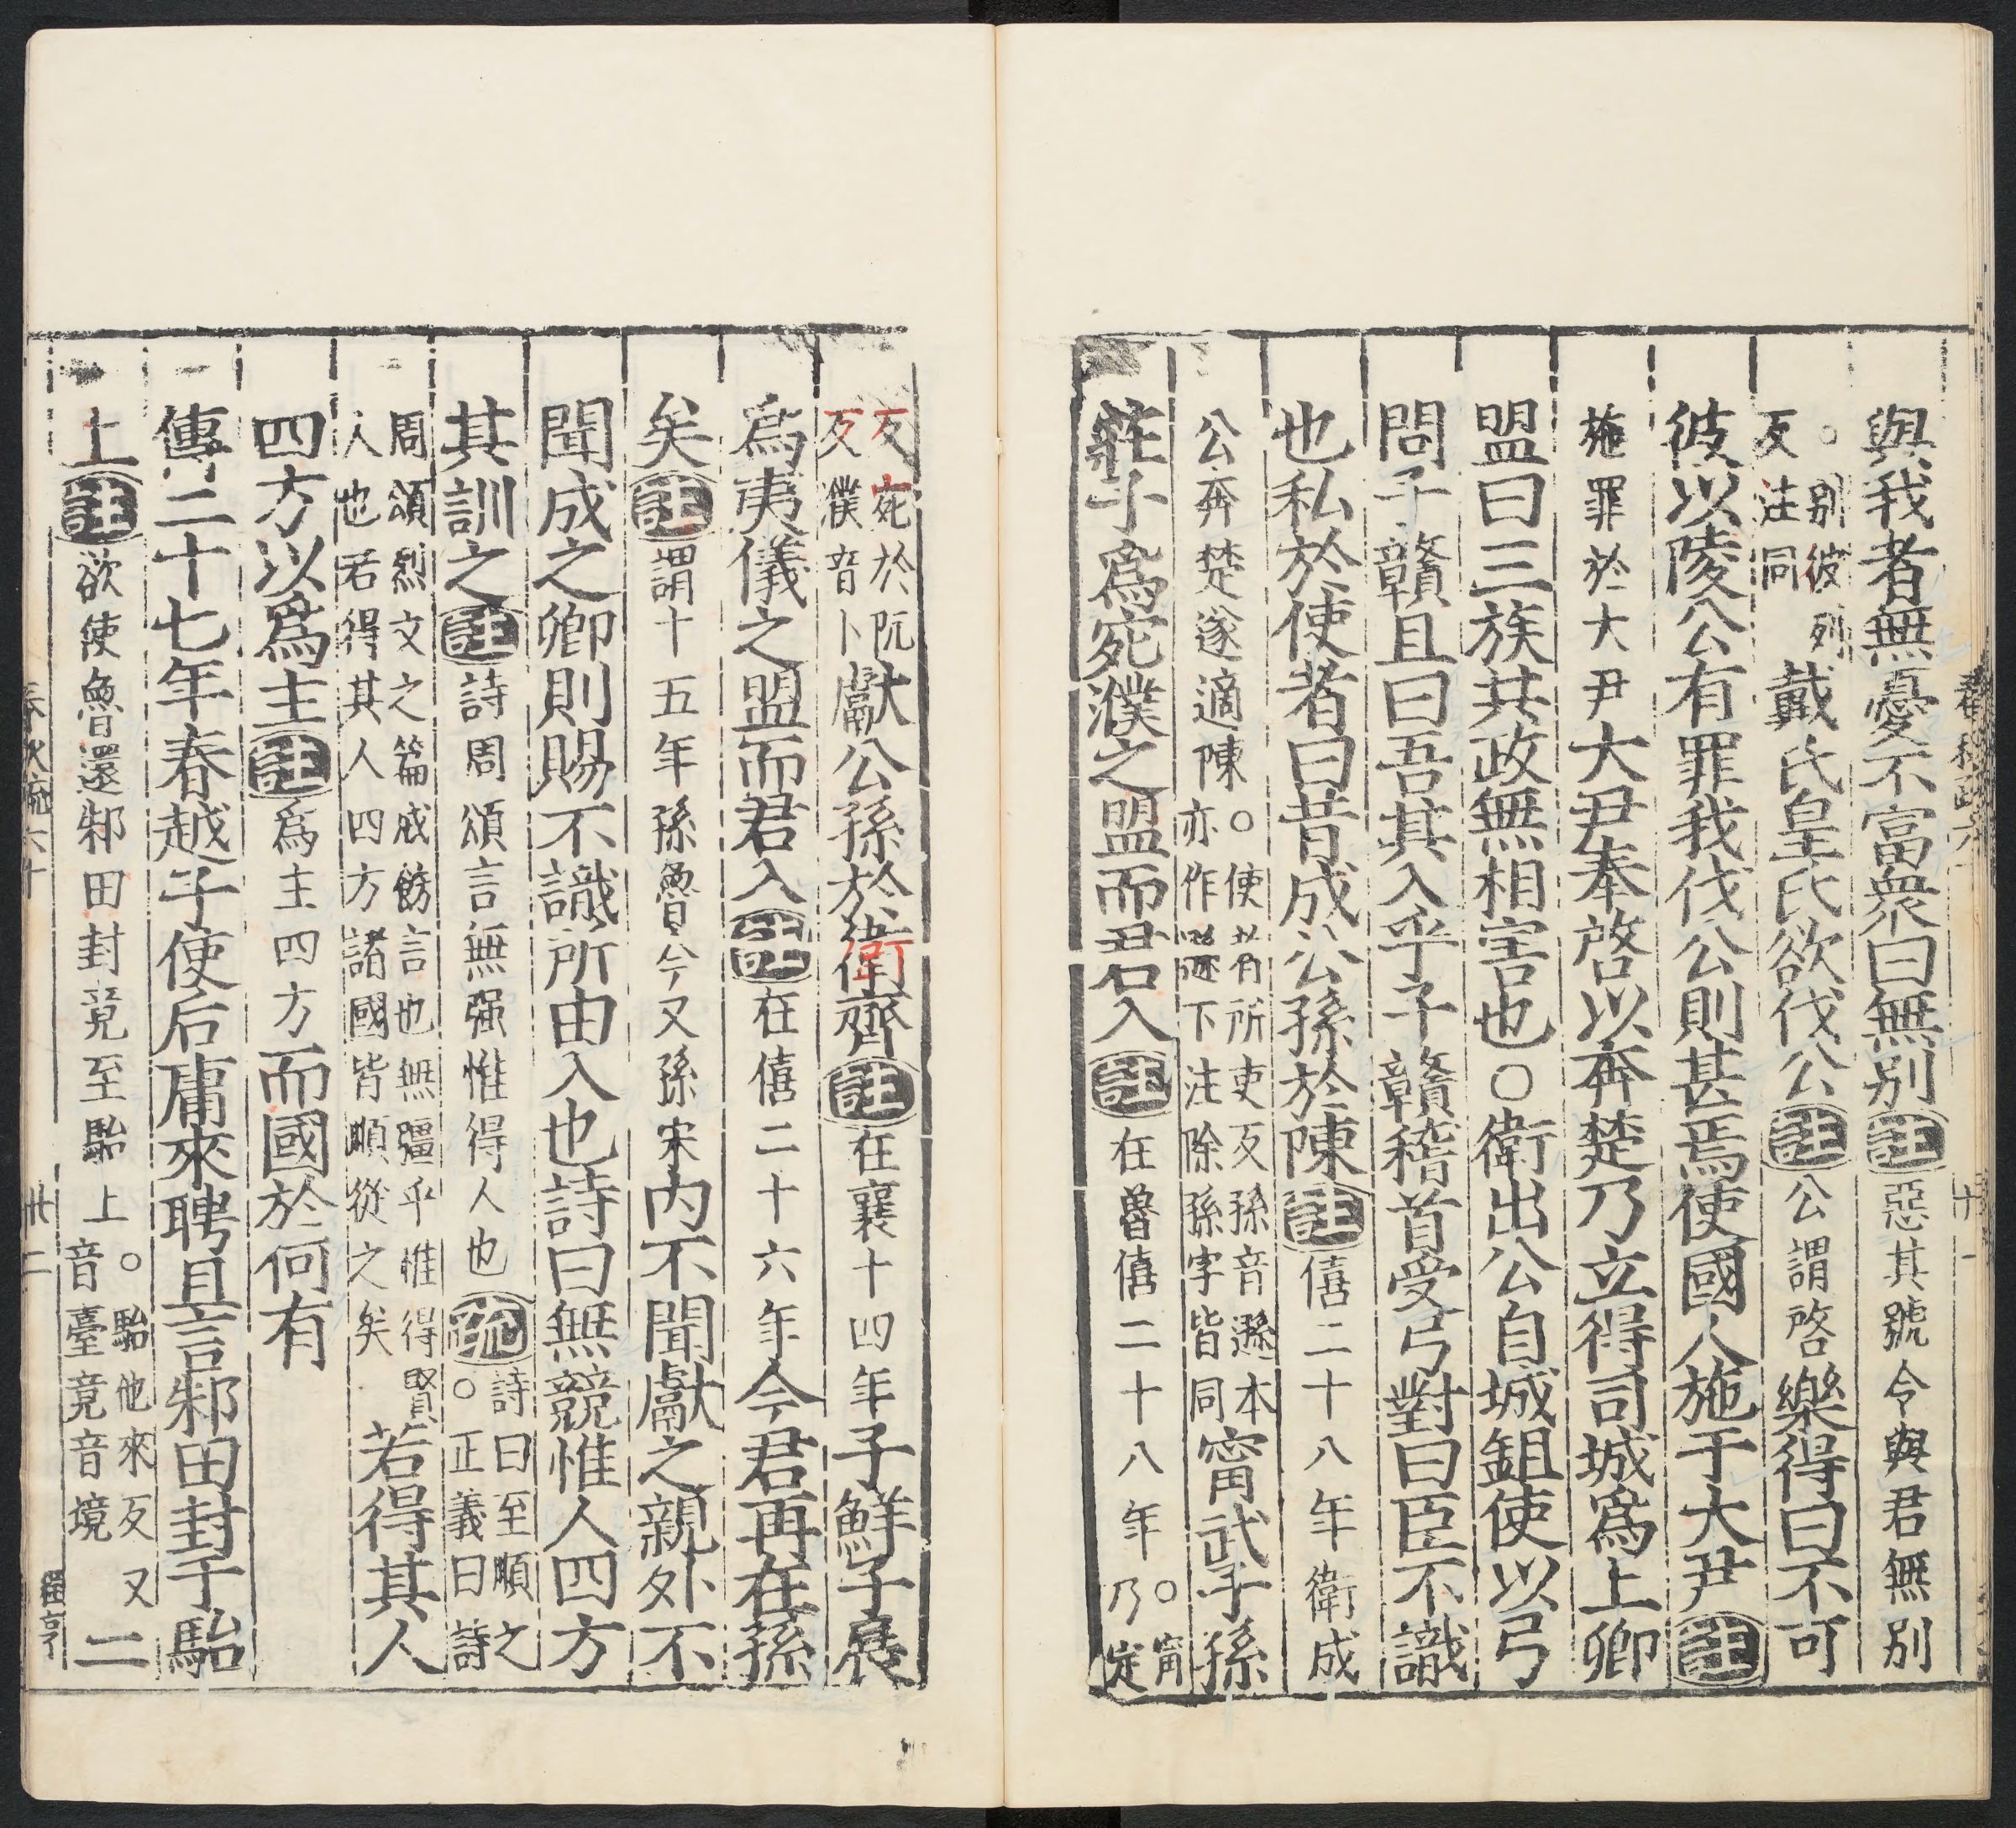 與我者無憂不富衆曰無別註惡其號令與君無別
○別彼列反注同戴氏皇氏欲伐公註公謂啓樂得曰不可
彼以陵公有罪我伐公則甚焉使國人施于大尹註
施罪於大尹大尹奉啓以奔楚乃立得司城爲上卿
盟曰三族共政無相害也○衛出公自城鉏使以弓
問子贛且曰吾其入乎子贛稽首受弓對曰臣不識
也私於使者曰昔成公孫於陳註僖二十八年衛成
公奔楚遂適陳○使者所吏反孫音遜本亦作遜下注除孫字皆同甯武子孫
莊子爲宛濮之盟而君入註在魯僖二十八年○甯乃定
反宛於阮反濮音卜獻公孫於衛齊註在襄十四年子鮮子展
爲夷儀之盟而君入註在僖二十六年今君再在孫
矣註謂十五年孫魯今又孫宋內不聞獻之親外不
聞成之卿則賜不識所由入也詩曰無競惟人四方
其訓之註詩周頌言無强惟得人也疏詩曰至順之○正義曰詩
周頌烈文之篇戒飭言也無彊乎惟得賢人也若得其人四方諸國皆順從之矣若得其人
四方以爲主註爲主四方而國於何有
傳二十七年春越子使后庸來聘且言邾田封于駘
上註欲使魯還邾田封竟至駘上○駘他來反又音臺竟音境二
春秋疏六十
廿二